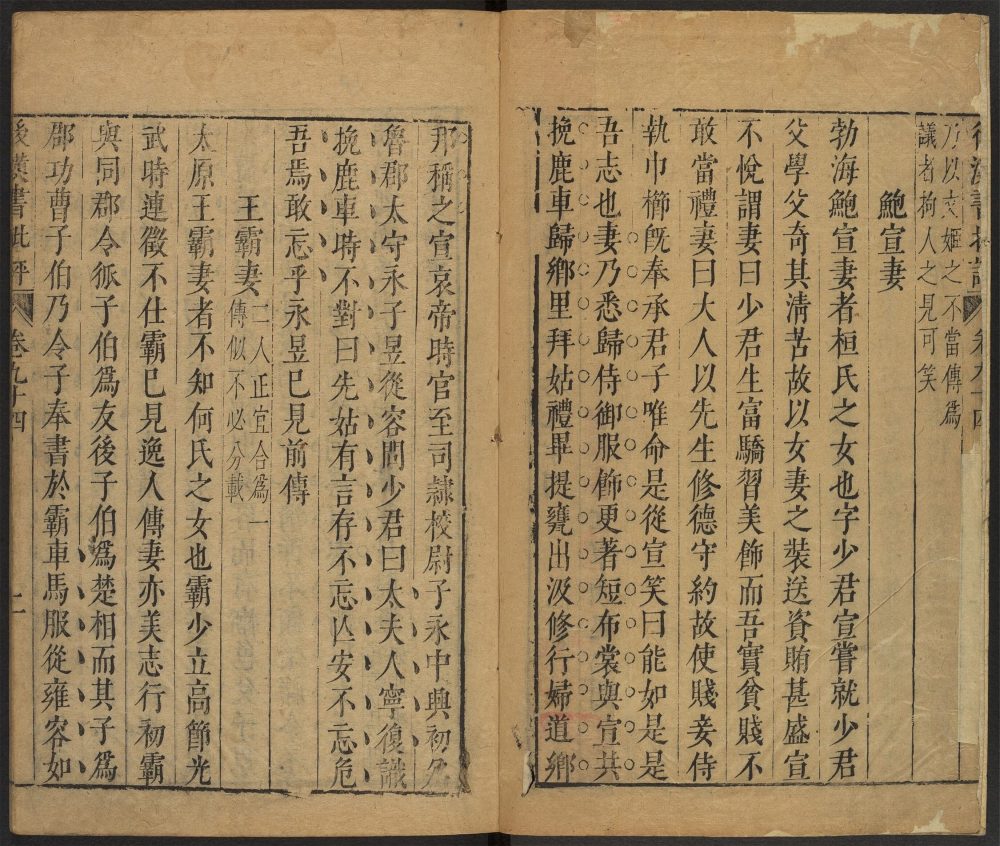 後漢書批評
乃以文姬之不當傳爲
議者拘人之見可笑
鮑宣妻
勃海鮑宣妻者桓氏之女也字少君宣嘗就少君
父學父奇其清苦故以女妻之裝送資賄甚盛宣
不悅謂妻曰少君生富驕習美飾而吾實貧賤不
敢當禮妻曰大人以先生修德守約故使賤妾侍
執巾櫛旣奉承君子唯命是從宣笑曰能如是是
吾志也妻乃悉歸侍御服飾更著短布裳與宣共
挽鹿車歸鄉里拜姑禮畢提甕出汲修行婦道鄉
邦稱之宣哀帝時官至司隷校尉子永中興初爲
魯郡太守永子昱從容問少君曰太夫人寧復識
挽鹿車時不對曰先姑有言存不忘亾安不忘危
吾焉敢忘乎永昱已見前傳
王霸妻
二人正宜合爲一
傳似不必分載
太原王霸妻者不知何氏之女也霸少立高節光
武時連徵不仕霸已見逸人傳妻亦美志行初霸
與同郡令狐子伯爲友後子伯爲楚相而其子爲
郡功曹子伯乃令子奉書於霸車馬服從雍容如
後漢書批評
卷九十四
二